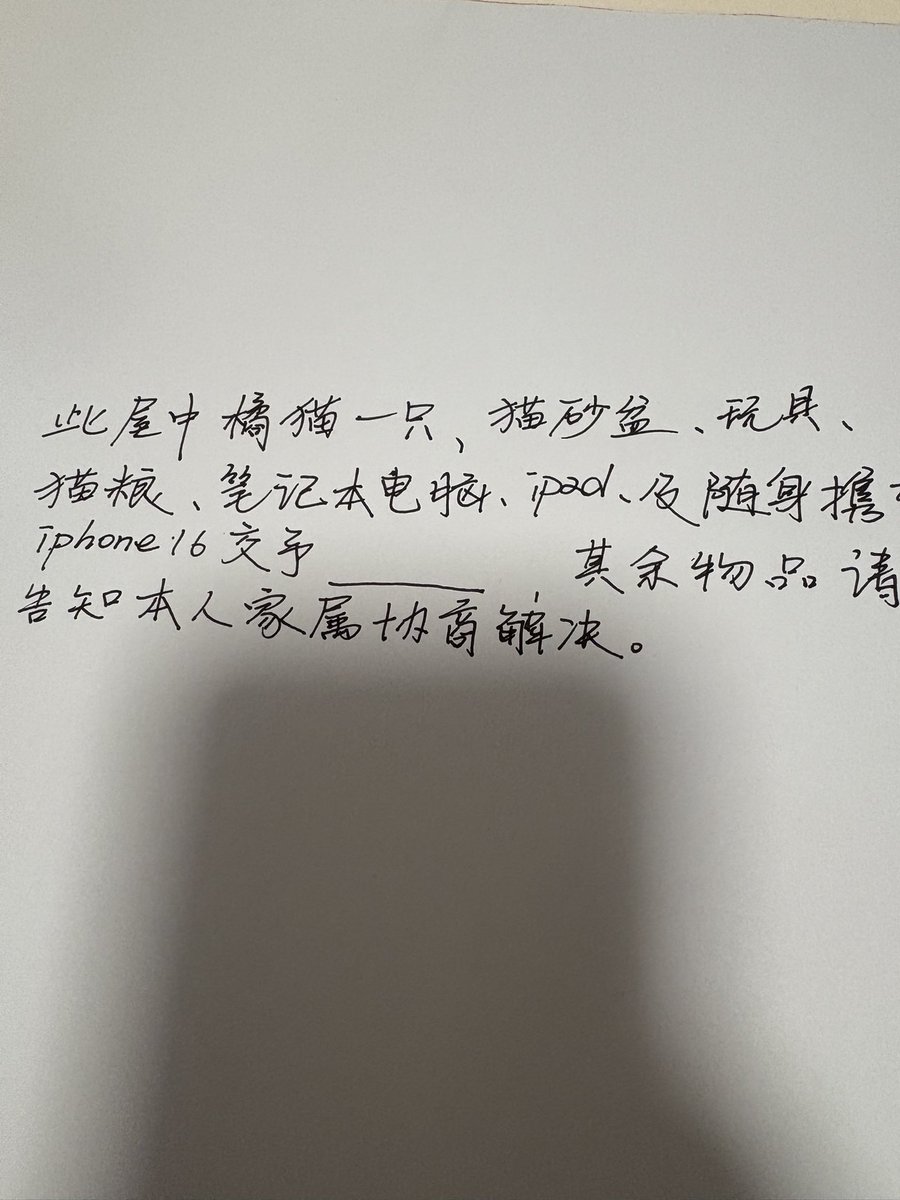 此屋中橘猫一只、猫砂盆、玩具、
猫粮、笔记本电脑、ipad、及随身携
iphone16交予______ 其余物品请
告知本人家属协商解决。